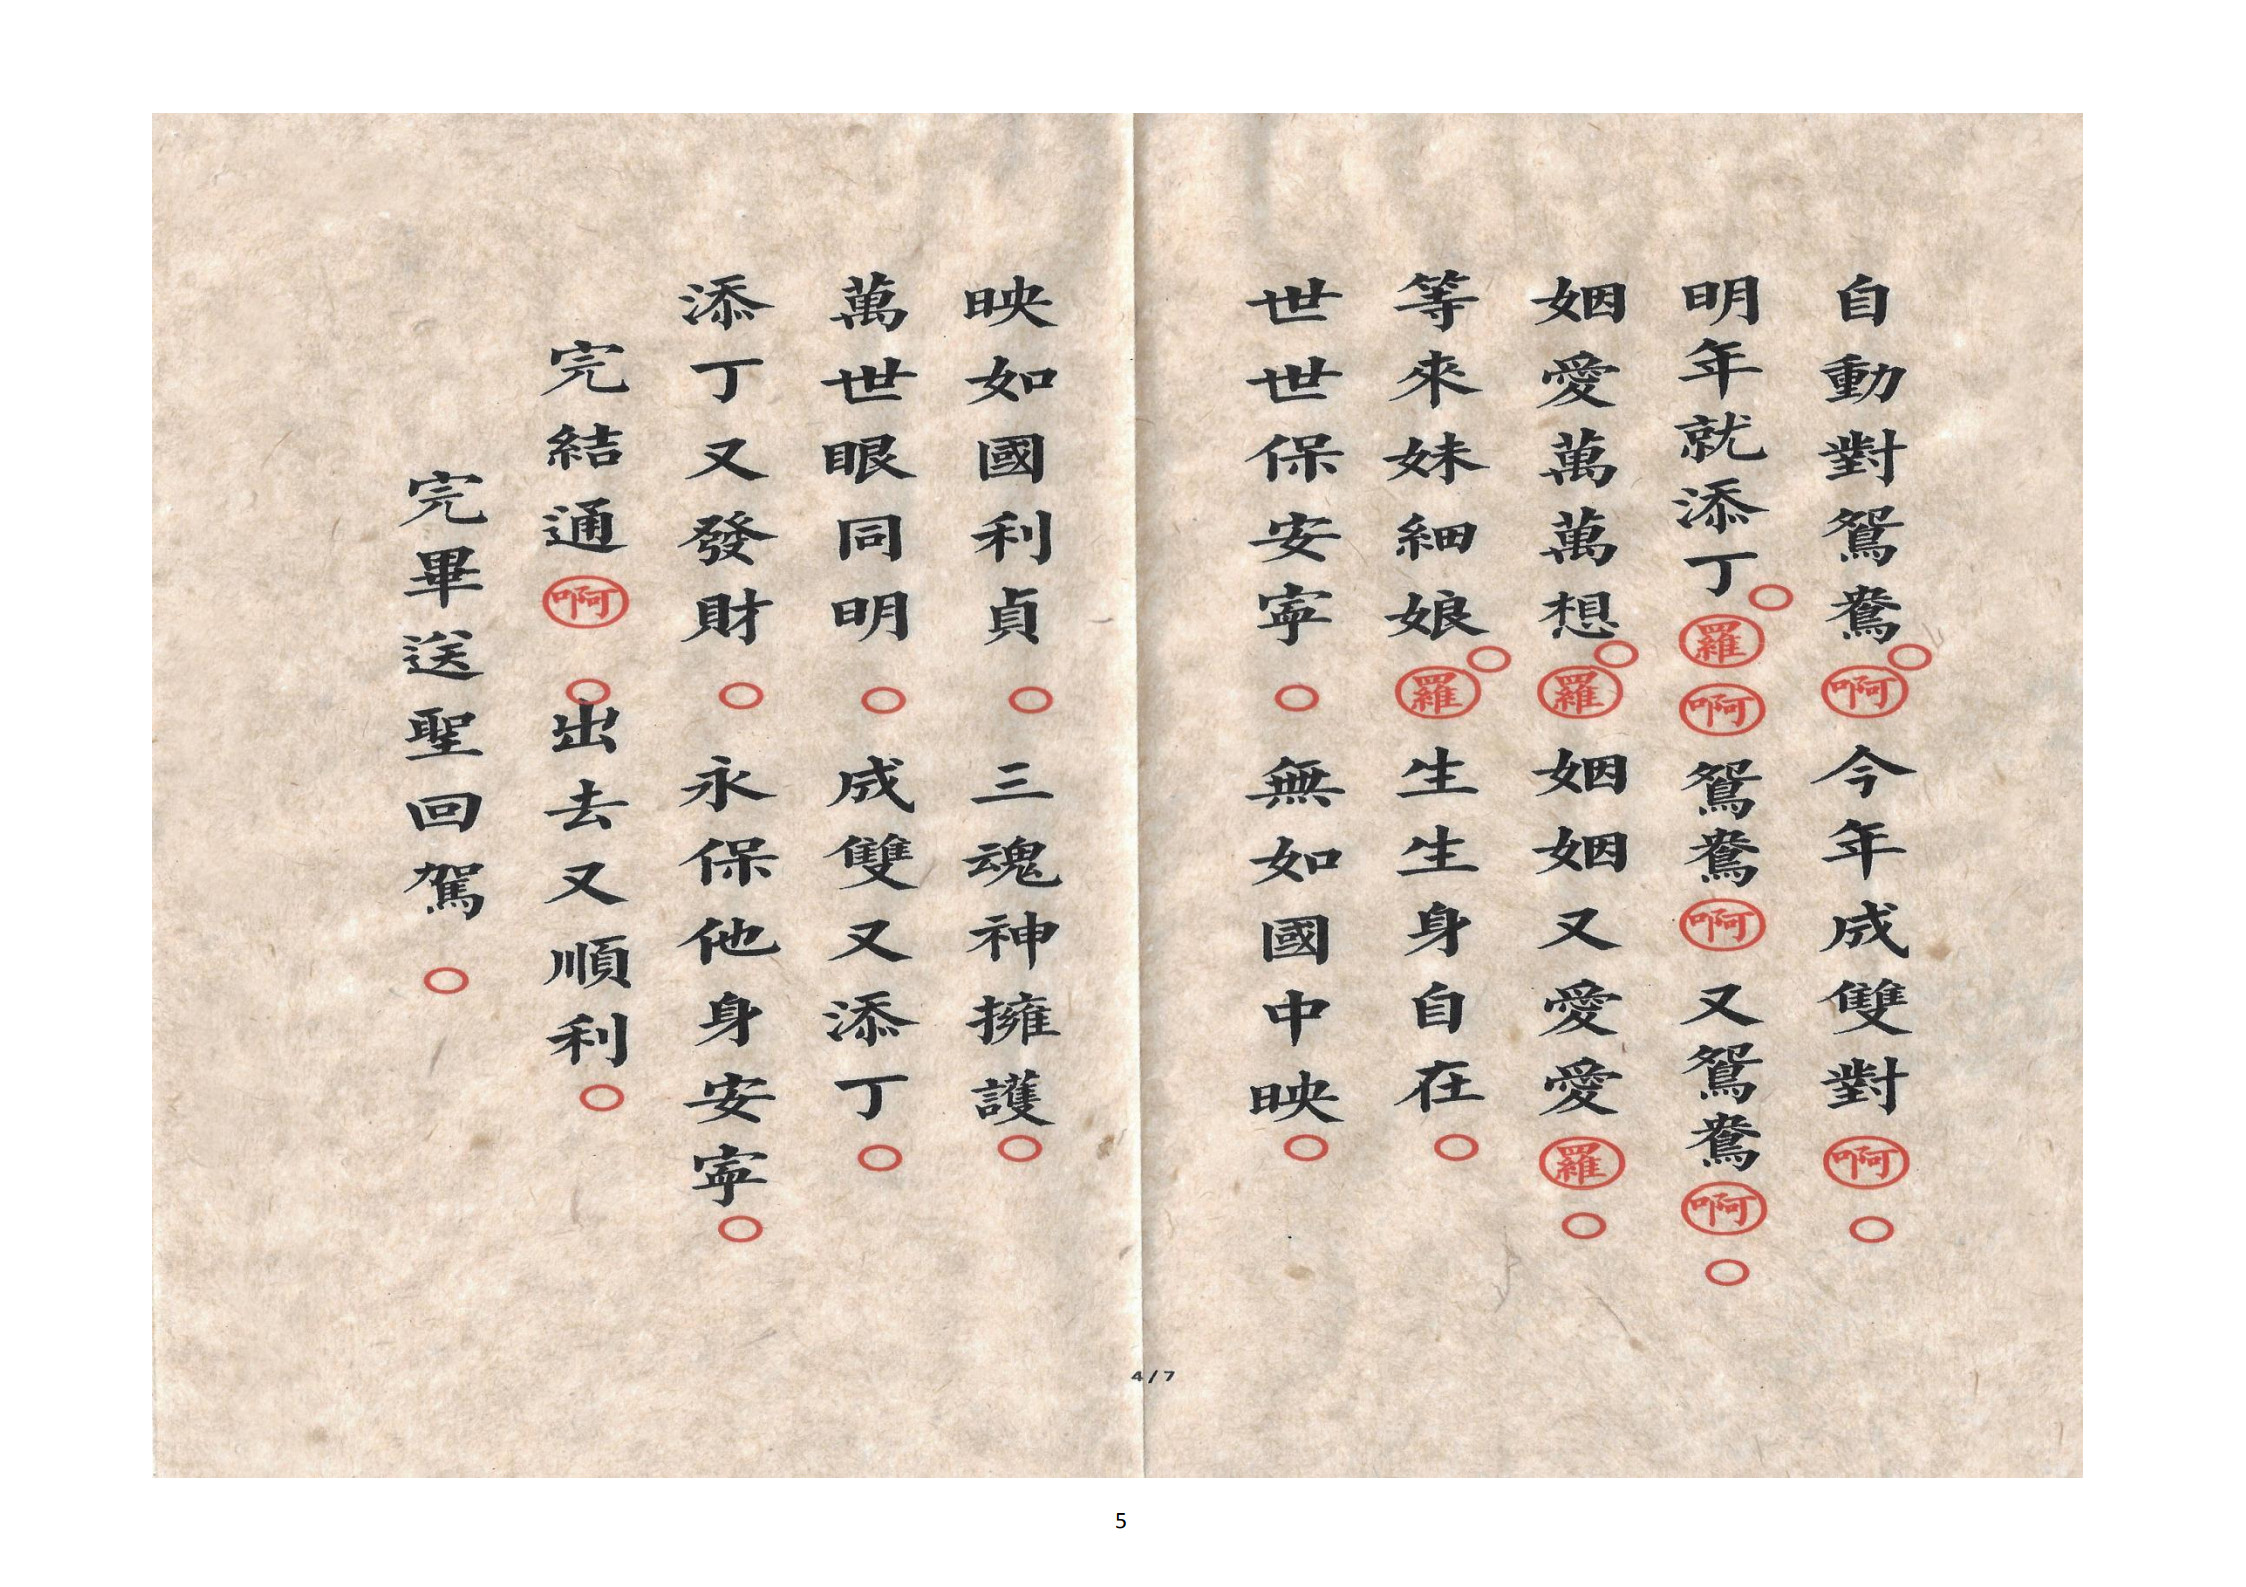 自動對鴛鴦。啊今年成雙對啊。
明年就添丁。羅啊鴛鴦啊又鴛鴦啊。
姻愛萬萬想。羅姻姻又愛愛羅。
等來妹細娘。羅生生身自在。
世世保安寧。無如國中映。
映如國利貞。三魂神擁護。
萬世眼同明。成雙又添丁。
添丁又發財。永保他身安寧。
完結通啊。出去又順利。
完畢送聖回駕。
4/7
5